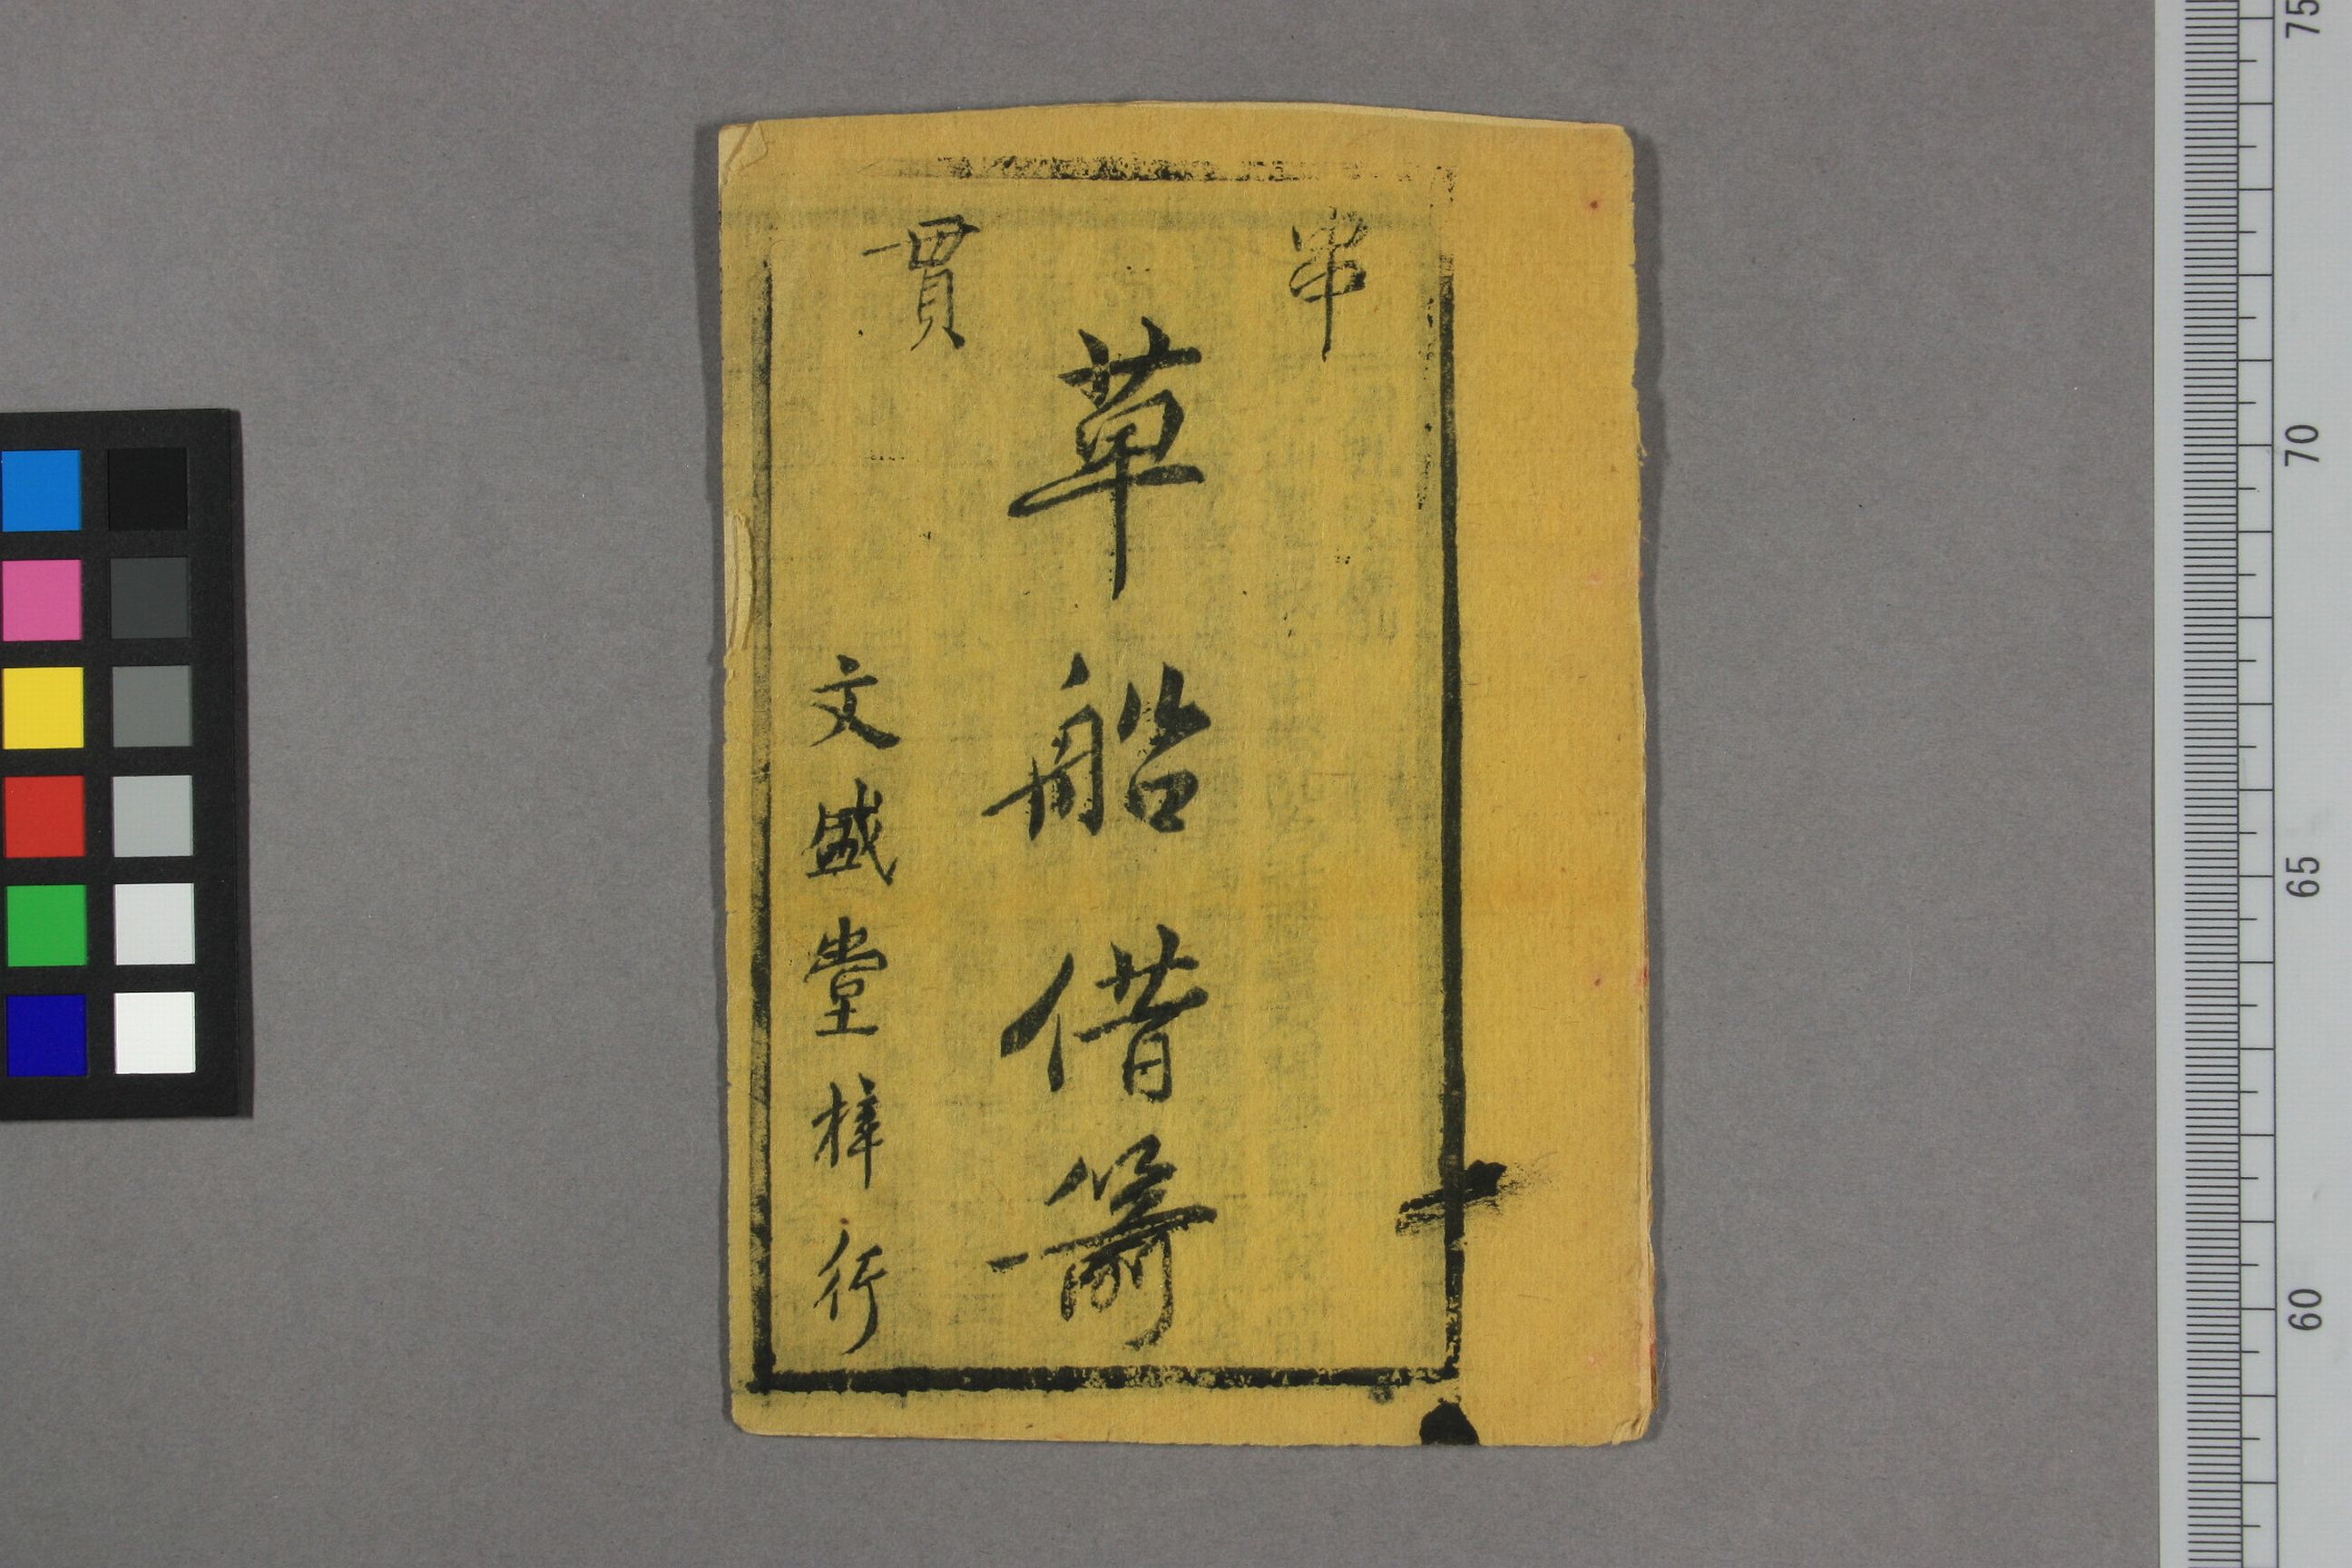 串貫
草船借箭
文盛堂梓行
75
70
65
60